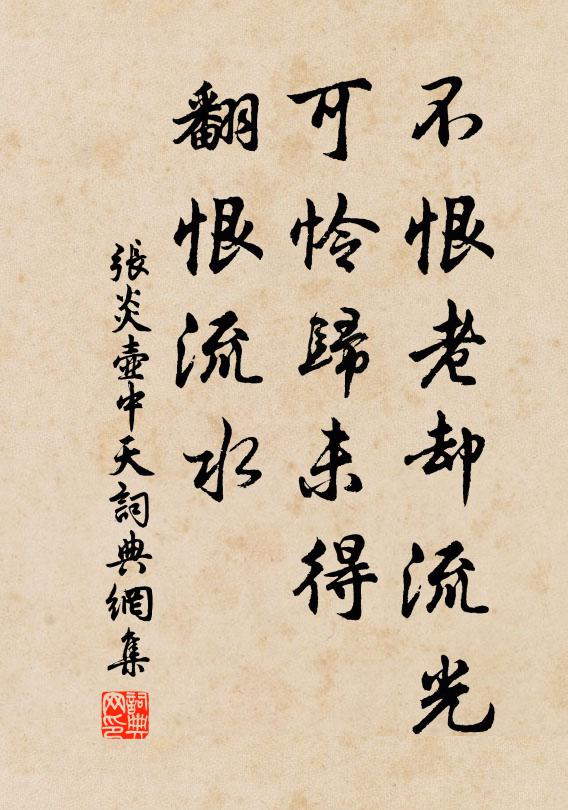 不恨老却流光
可怜歸未得
翻恨流水
張炎壺中天詞典網集
詞典
网印